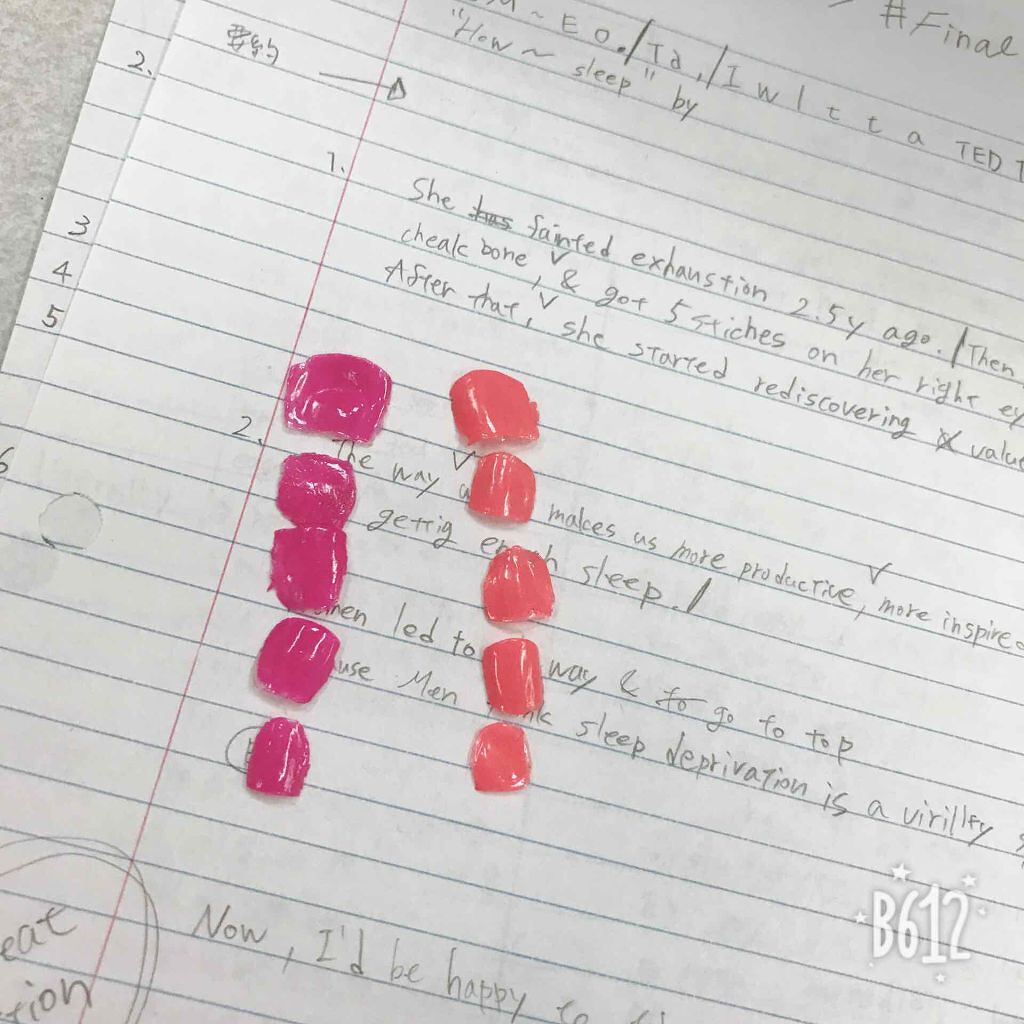 #Final
E O./Td,/I w l t t a TED T
"How ~ sleep" by
要約
2.
1.
She has fainted exhaustion 2.5y ago./Then,
cheak bone, & got 5 stiches on her right ey
After that, she started rediscovering value
3
4
5
2.
The way makes us more productive, more inspired
gettig sleep./
6
led to way & to go to top
use Men sleep deprivation is a virillty
eat
tion
Now, I'd be happy to
B612